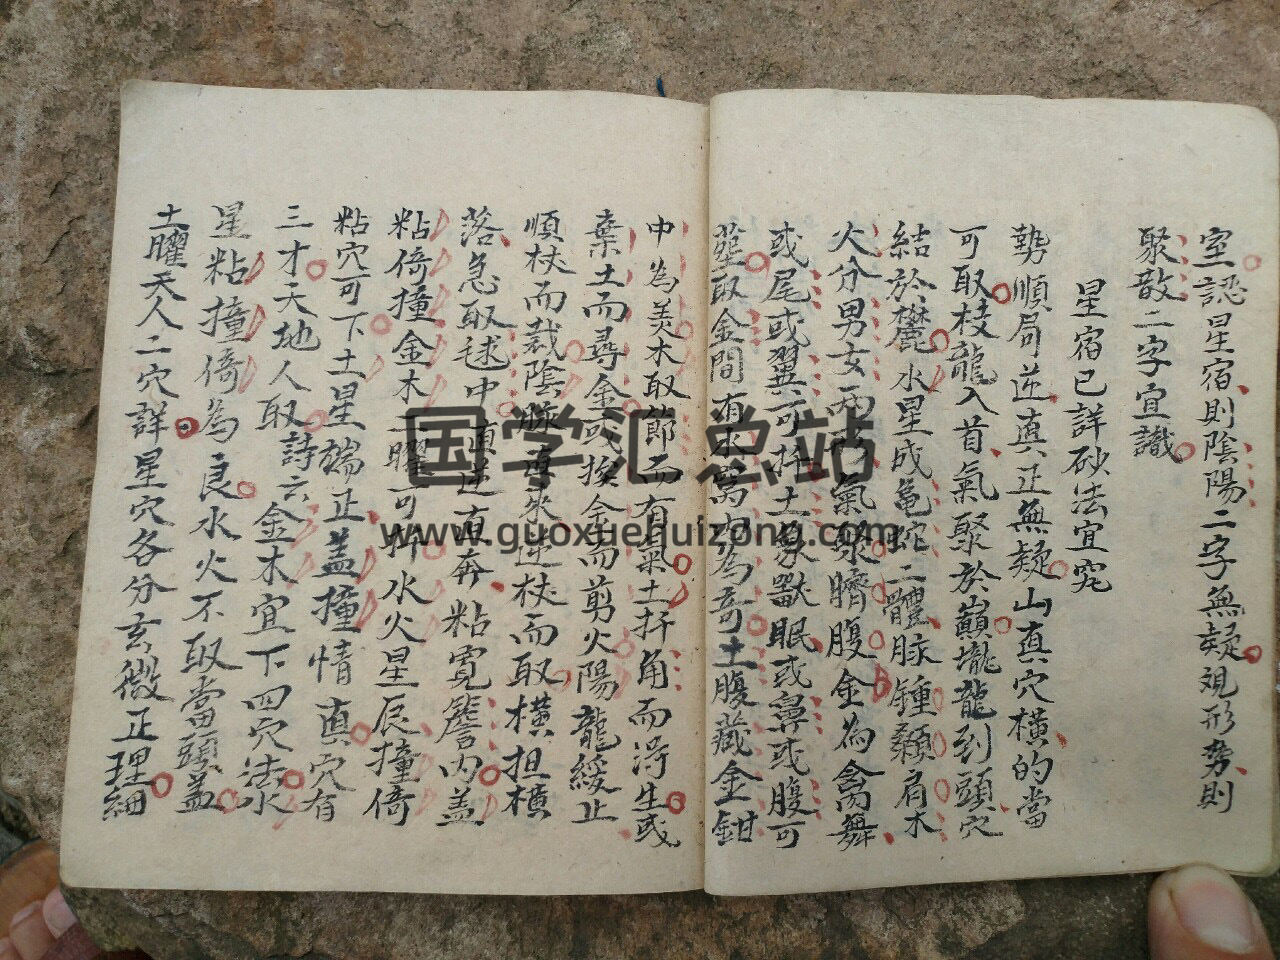 室認星宿則陰陽二字無疑覌形势則
聚散二字宜識
星宿已詳砂法宜究
勢順局逆真正無疑山直穴横的當
可取枝龍入首氣聚於巔壠龍到頭穴
結於麓水星成亀蛇二體脉鍾顙肩木
火分男女兩氣聚臍腹金為禽舞
或尾或翼可扦土象獸眠或鼻或腹可
取金間有水窩為奇土腹藏金鉗
中為美木取節而有氣土扦角而浔生或
棄土而尋金或挨金而剪火陽龍緩止
順杖而裁陰脉逆杖而取横担横
落急取毬中順逆直奔粘寛簷内盖
粘倚撞金木二曜可扦水火星辰撞倚
粘穴可下土星端正盖撞情真穴有
三才天地人取詩云金木宜下四穴法水
星粘撞倚為良水火不取當頭盖
土曜天人二穴詳星穴各分玄微正理細
国学汇总站
www.guoxuehuizong.com